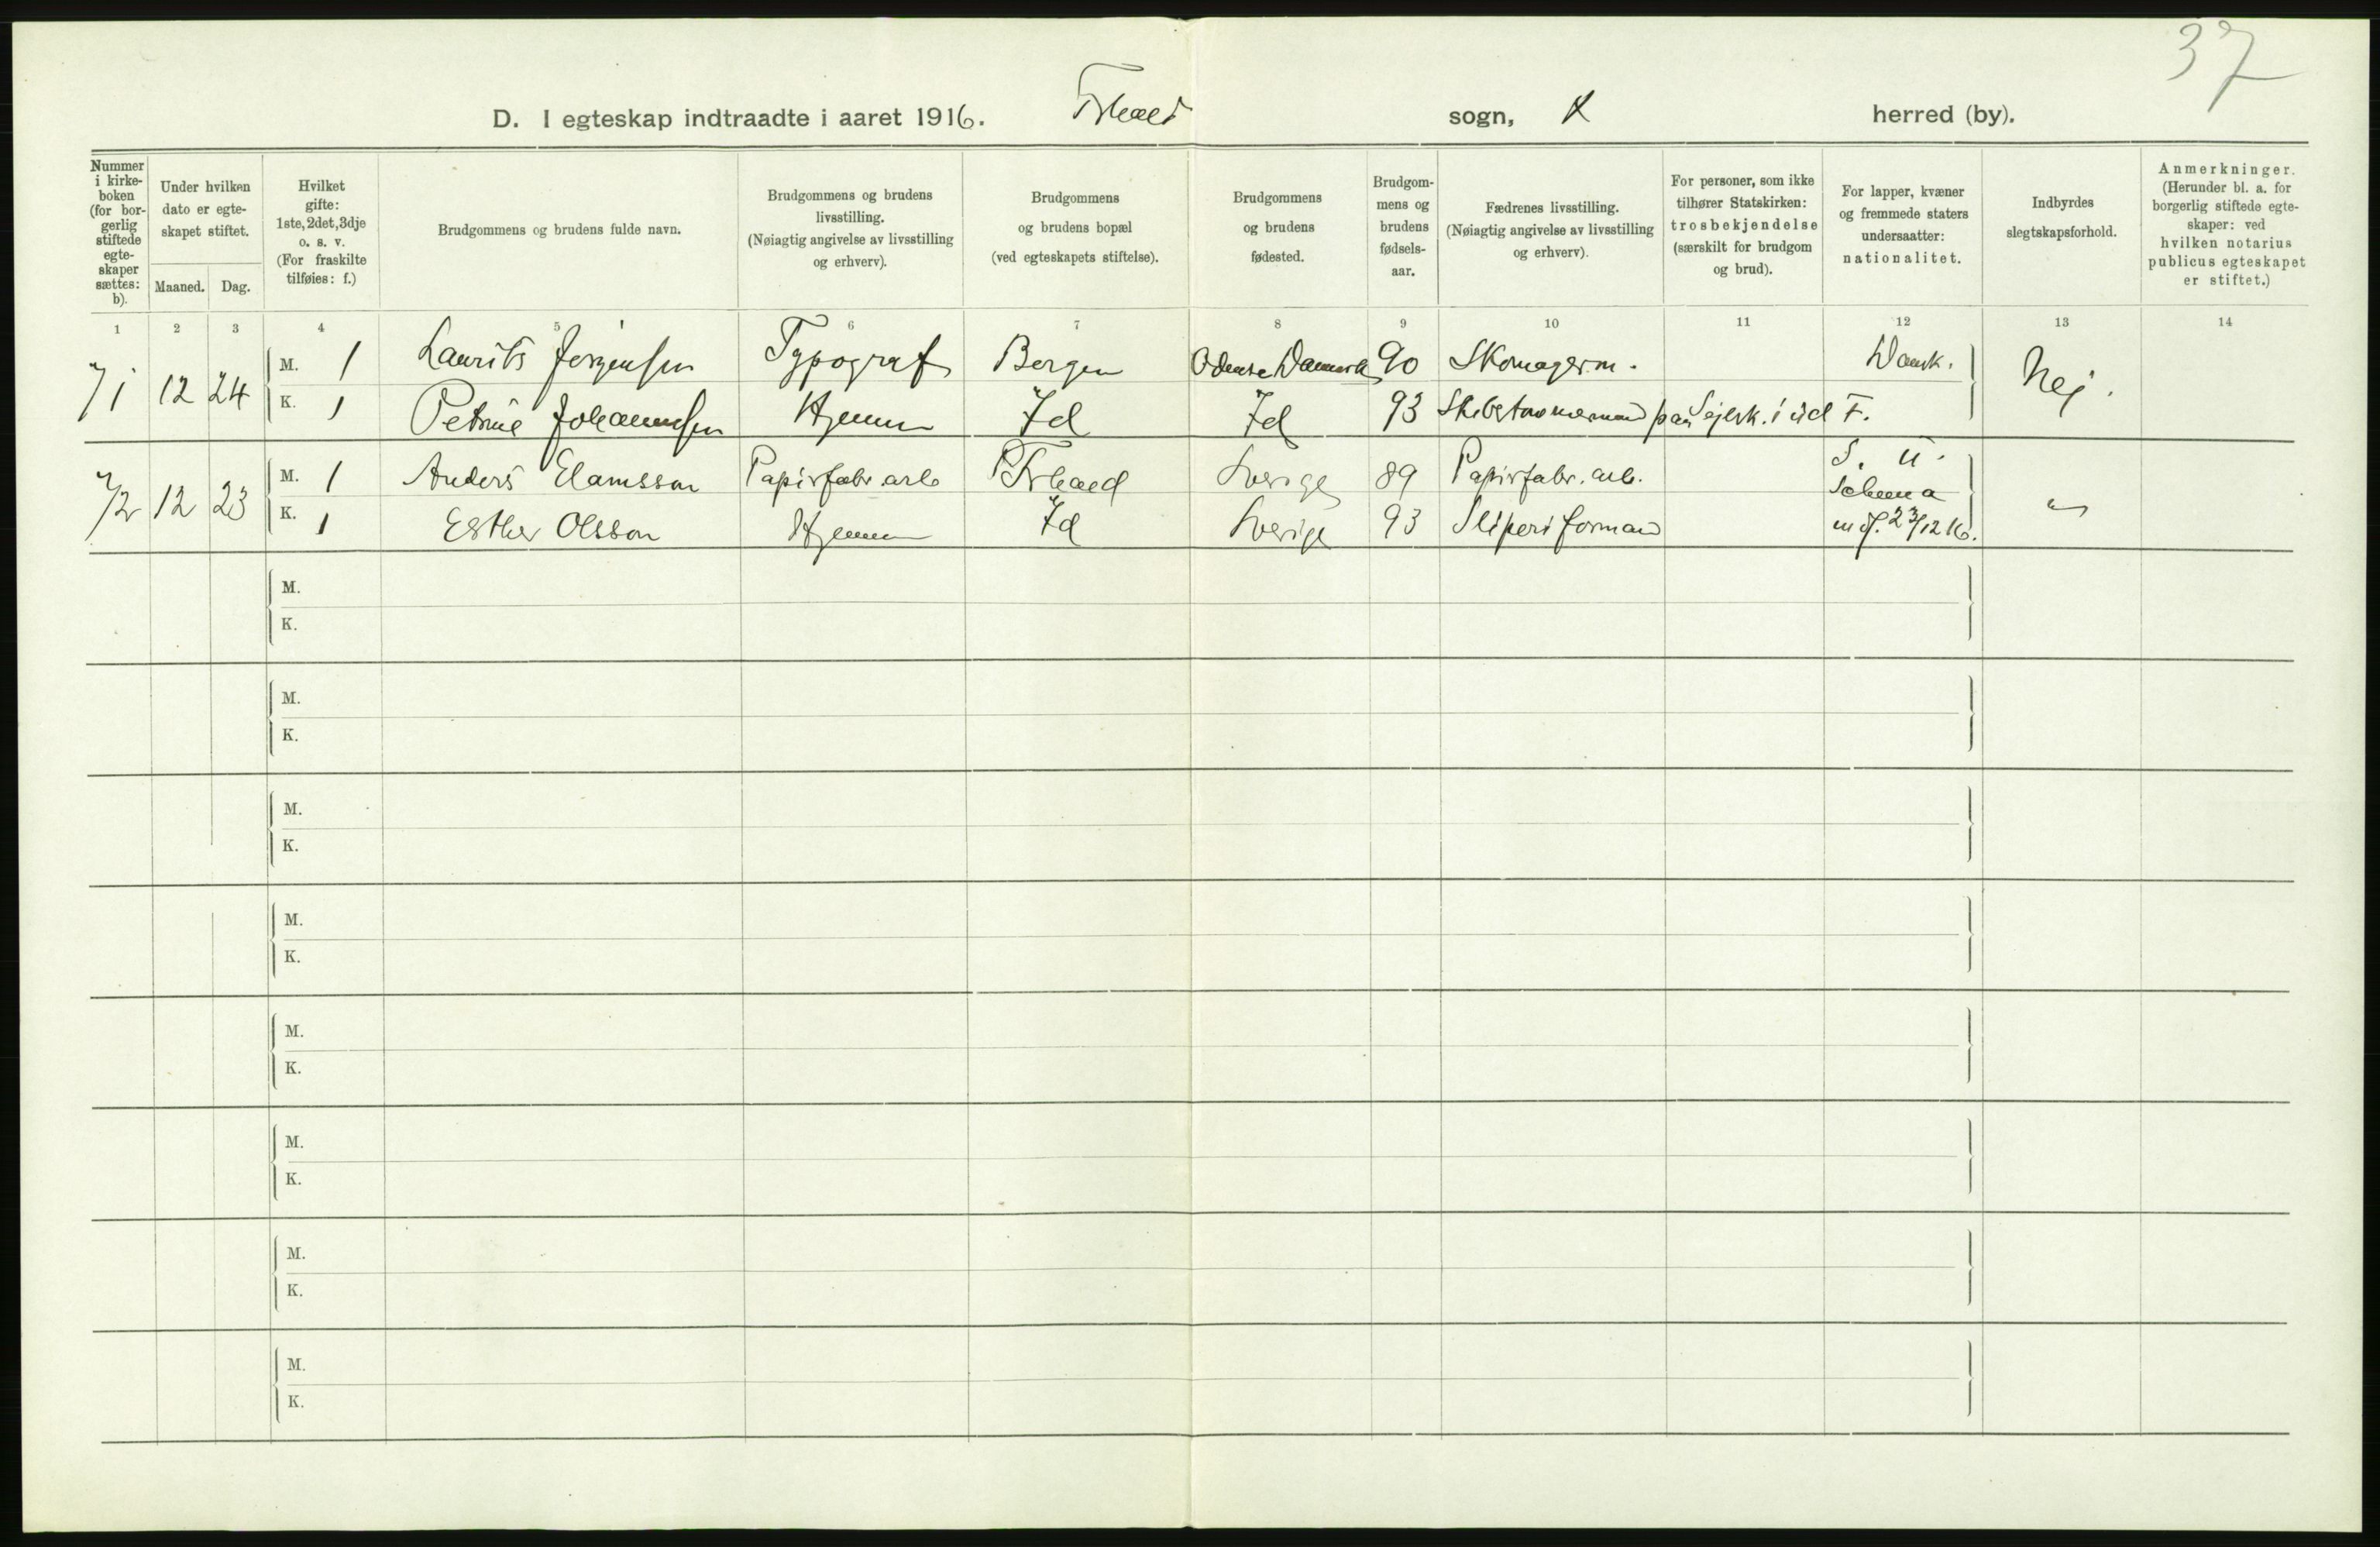 37
D. I egteskap indtraadte i aaret 1916. Frhald sogn, herred (by).
Nummer i kirkeboken (for borgerlig stiftede egteskaper sættes: b).
Under hvilken dato er egteskapet stiftet.
Maaned. Dag.
Hvilket gifte: 1ste, 2det, 3dje o. s. v. (For fraskilte tilføies: f.)
Brudgommens og brudens fulde navn.
Brudgommens og brudens livsstilling. (Nøiagtig angivelse av livsstilling og erhverv).
Brudgommens og brudens bopæl (ved egteskapets stiftelse).
Brudgommens og brudens fødested.
Brudgommens og brudens fødselsaar.
Fædrenes livsstilling. (Nøiagtig angivelse av livsstilling og erhverv).
For personer, som ikke tilhører Statskirken: trosbekjendelse (særskilt for brudgom og brud).
For lapper, kvæner og fremmede staters undersaatter: nationalitet.
Indbyrdes slegtskapsforhold.
Anmerkninger. (Herunder bl. a. for borgerlig stiftede egteskaper: ved hvilken notarius publicus egteskapet er stiftet.)
1 2 3 4 5 6 7 8 9 10 11 12 13 14
71 12 24 M. 1 Laurits Jørgensen Typograf Bergen Odense Danmark 90 Skomagerm. Dansk. Nej.
K. 1 Petrine Johannessen Hjemme Id Id 93 Skibstømmermand paa Sejlsk. i ud F.
72 12 23 M. 1 Anders Elamsson Papirfabr. arb Frhald Sverige 89 Papirfabr. arb. S. U.
Schema
K. 1 Esther Olsson Hjemme Id Sverige 93 Sliperiformand 23/12 16. "
M.
K.
M.
K.
M.
K.
M.
K.
M.
K.
M.
K.
M.
K.
M.
K.